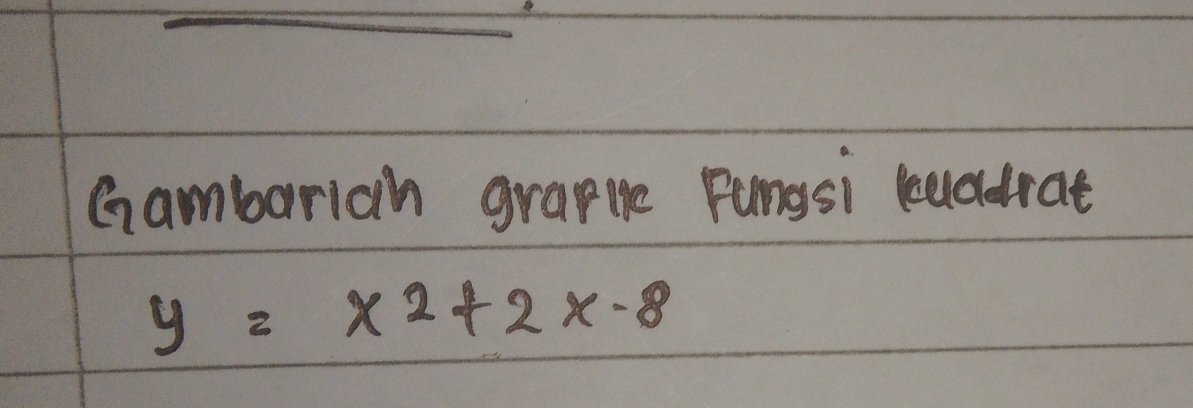 Gambarlah grafik Fungsi kuadrat
y = x2+2x-8